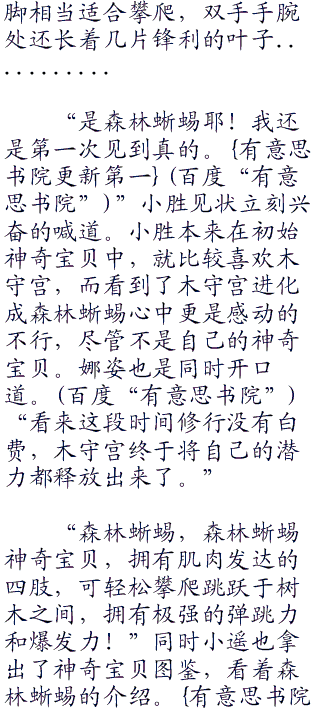 脚相当适合攀爬，双手手腕
处还长着几片锋利的叶子..
.........
“是森林蜥蜴耶！我还
是第一次见到真的。{有意思
书院更新第一} (百度“有意
思书院”)”小胜见状立刻兴
奋的喊道。小胜本来在初始
神奇宝贝中，就比较喜欢木
守宫，而看到了木守宫进化
成森林蜥蜴心中更是感动的
不行，尽管不是自己的神奇
宝贝。娜姿也是同时开口
道。(百度“有意思书院”)
“看来这段时间修行没有白
费，木守宫终于将自己的潜
力都释放出来了。”
“森林蜥蜴，森林蜥蜴
神奇宝贝，拥有肌肉发达的
四肢，可轻松攀爬跳跃于树
木之间，拥有极强的弹跳力
和爆发力！”同时小遥也拿
出了神奇宝贝图鉴，看着森
林蜥蜴的介绍。{有意思书院